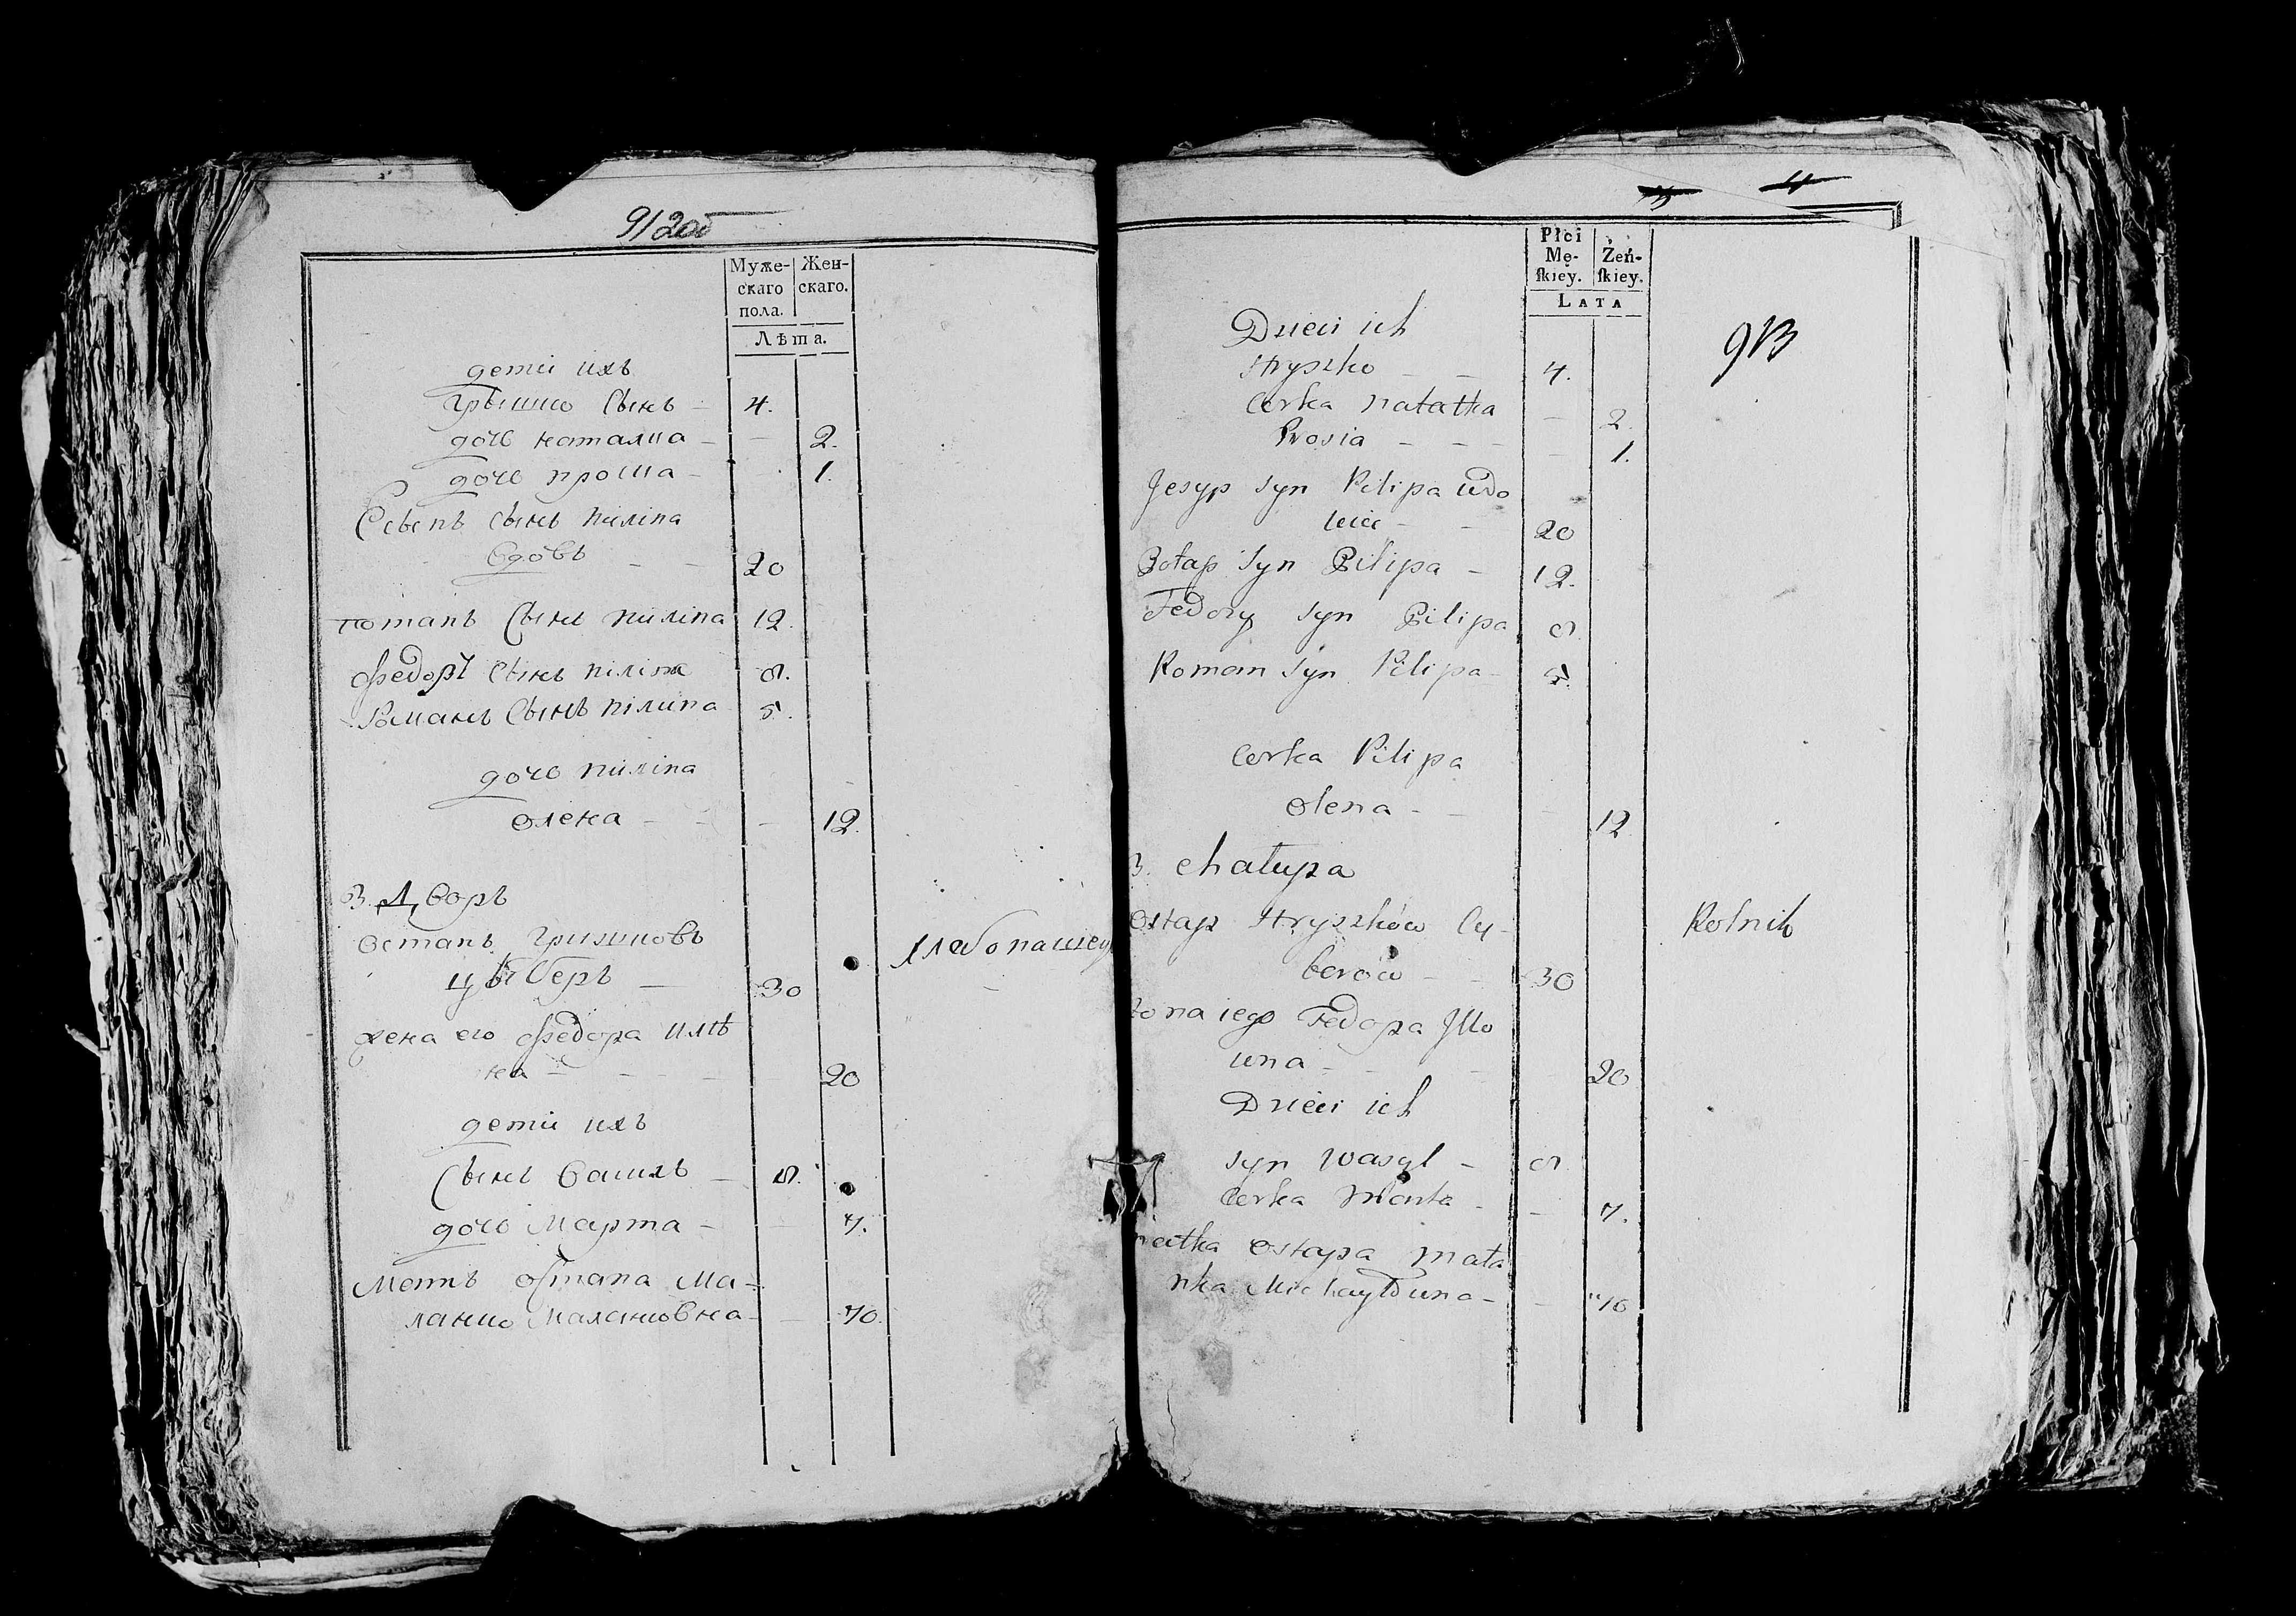 912об
Муже-
скаго
пола.
Жен-
скаго.
Лѣта.
дети ихъ
Грышко Сынъ - 4.
дочь наталка - 2.
дочь проша - 1.
Есыпъ сынъ пиліпа
Вдовъ - - 20
потапъ Сынъ пиліпа 12.
федоръ Сынъ піліпа 8.
Романъ Сынъ піліпа 5.
дочь пиліпа
олена - - 12.
3. Дворъ
Остапъ Гришковъ
цыберъ - 30
хлебопашецъ
жена его федора илѣ
на - - 20
дети ихъ
Сынъ Василь - 8.
дочь Марта - 7.
Мать остапа Ма-
ланка Малановна - 70.
Płci
Mę-
skiey.
Żeń-
skiey.
LATA
913
Dzieci ich
Hryszko - - 4.
Corka Natałka - 2.
Prosia - - - 1.
Jesyp syn Pilipa wdo
wiec - - 20
Potap Syn Pilipa - 12.
Fedory syn Pilipa 8
Roman syn Pilipa - 5.
Corka Pilipa
Olena - - 12
3. chałupa
Ostap Hryszków Cy-
berów - - 30
Rolnik
Zona iego Fedora Jllo
wna - - 20
Dzieci ich
syn Wasyl - 8
Corka Marta - - 7.
Matka Ostapa Mała
nka Michayłowna - - 70